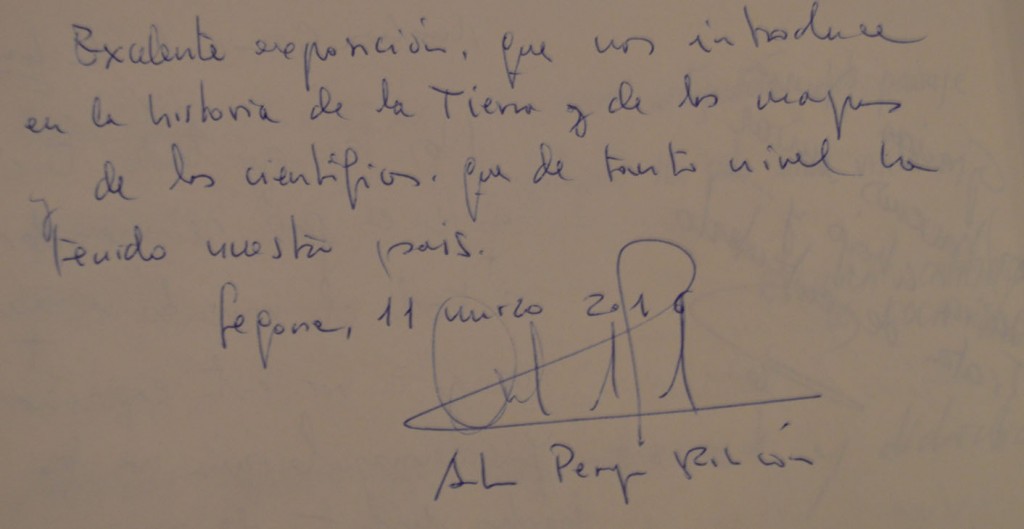 Excelente exposición, que nos introduce
en la historia de la Tierra y de los mapas
y de los científicos. que de tanto nivel ha
tenido nuestro pais.
Segovia, 11 marzo 2016